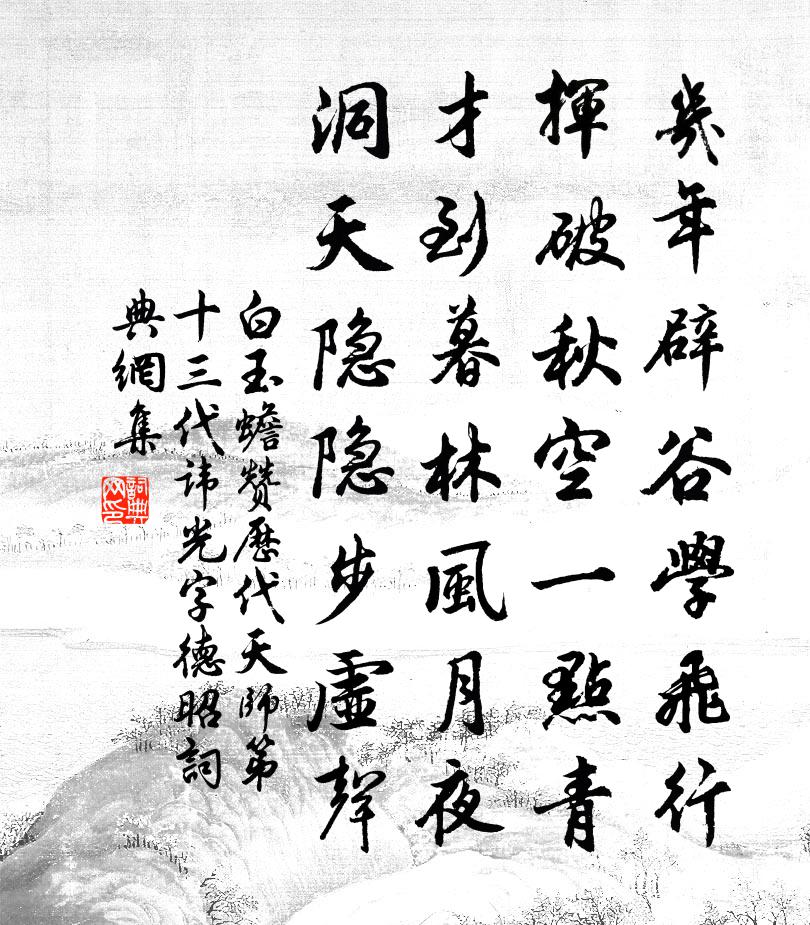 幾年辟谷學飛行
揮破秋空一點青
才到暮林風月夜
洞天隐隐步虛聲
白玉蟾贊歷代天師第
十三代諱光字德昭詞
典網集
詞典网印